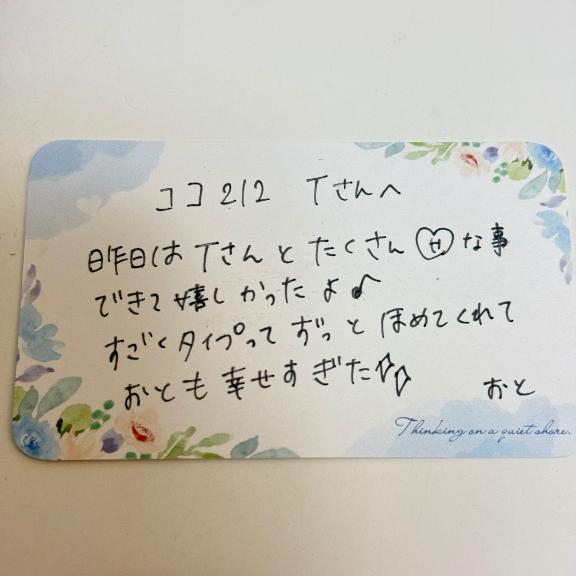 ココ212 Tさんへ
昨日はTさんとたくさんHな事
できて嬉しかったよ♪
すごくタイプってずっとほめてくれて
おとも幸せすぎた✧✧
おと
Thinking on a quiet shore.